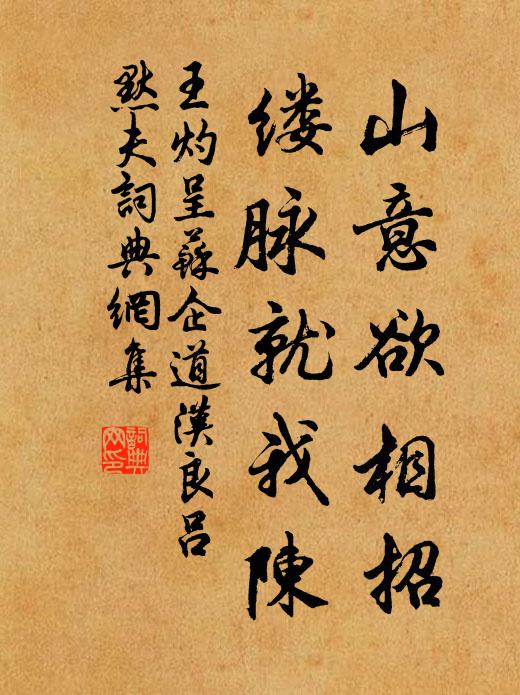 山意欲相招
缕脉就我陳
王灼呈蘇企道漢良呂
默夫詞典網集
詞典
网印